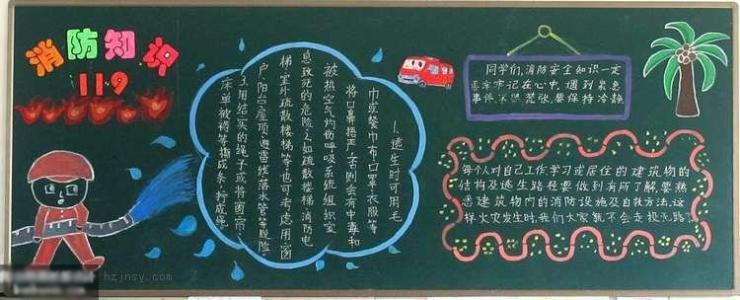 消防知识
11.9
1.逃生时可用毛
巾或餐巾布口罩、衣服等
将口鼻捂严,否则会有中毒和
被热空气灼伤呼吸系统组织窒
息致死的危险。2.如疏散楼梯消防电
梯、室外疏散楼梯等也可考虑用窗
户、阳台、屋顶、避雷线、落水管等脱险。
3.用结实的绳子或将窗帘、
床单、被褥等撕成条,拧成绳
同学们,消防安全知识一定
要牢牢记在心中,遇到紧急
事件不要慌张,要保持冷静
每个人对自己工作学习或居住的建筑物的
结构及逃生路径要做到有所了解,要熟
悉建筑物内的消防设施及自救方法,这
样火灾发生时,我们大家就不会走投无路了
hzjnsy.com